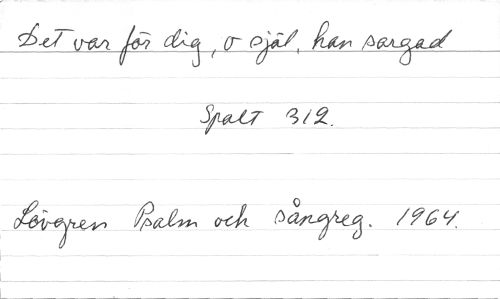 Det var för dig, o själ, han sargad
Spalt 312.
Lövgren Psalm och sångreg. 1964.